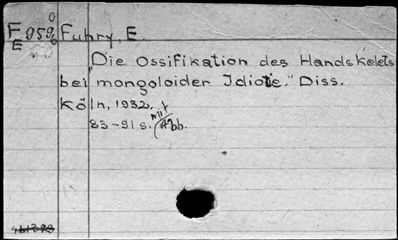 F 959 Fuhry, E.
E
"Die Ossifikation des Handskelets
bei mongoloider Idiotie." Diss.
Köln, 1932.
83-91 s. mit Abb.